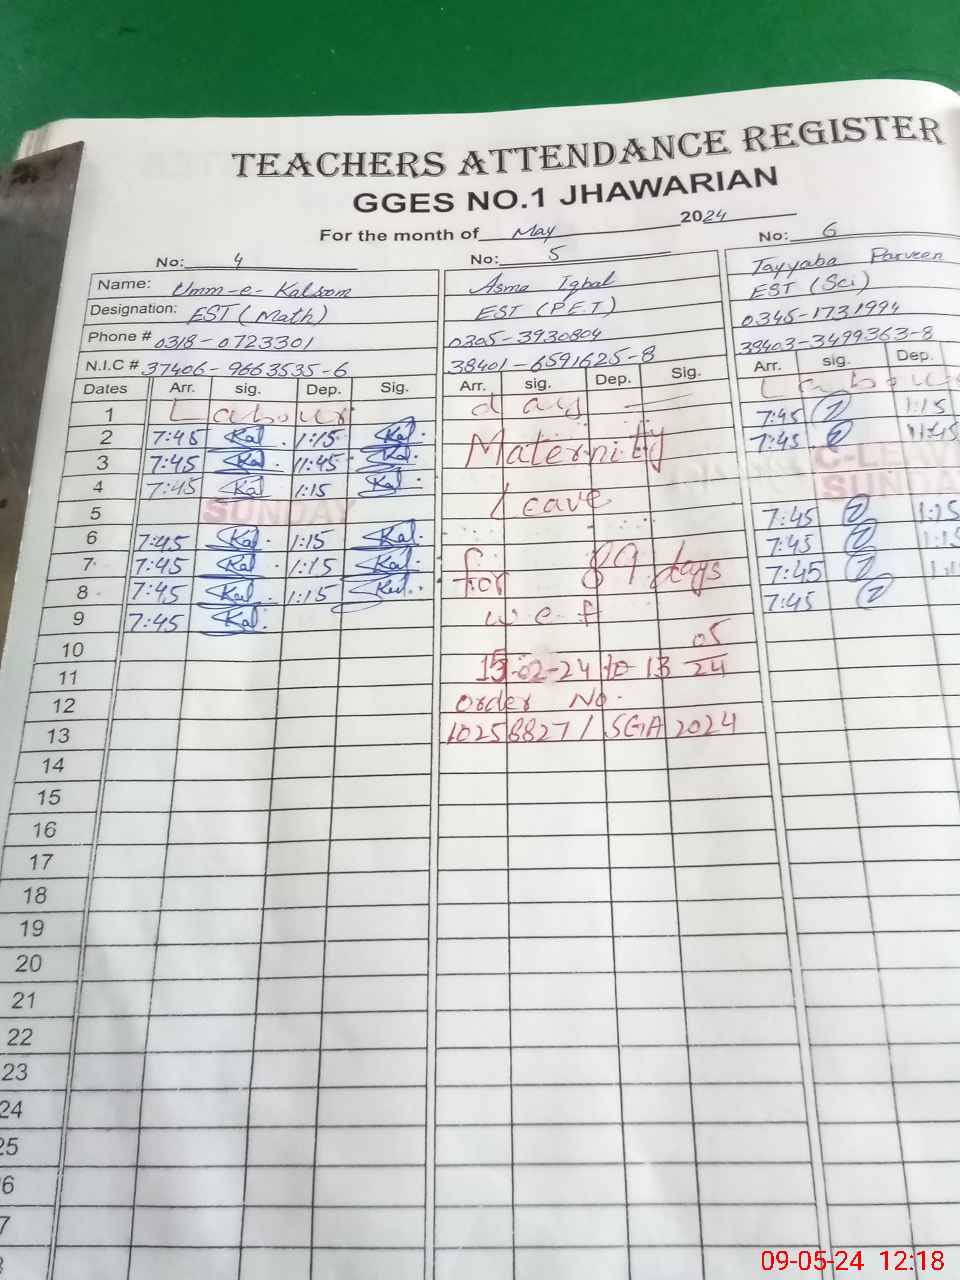 TEACHERS ATTENDANCE REGISTER
GGES NO.1 JHAWARIAN
For the month of May 2024
No: 4 No: 5 No: 6
Name: Umm-e-Kalsom Asma Iqbal Tayyaba Parveen
Designation: EST (Math) EST (P.E.T) EST (Sci)
Phone # 0318-0723301 0305-3930804 0345-1731994
N.I.C # 37406-9663535-6 38401-6591625-8 38403-3499363-8
Dates Arr. sig. Dep. Sig. Arr. sig. Dep. Sig. Arr. sig. Dep.
1 Labour day Labour
2 7:45 Kal. 1:15 Kal. Maternity 7:45 1:15
3 7:45 Kal. 11:45 Kal. 7:45 11:45
4 7:45 Kal 1:15 Kal. Leave C-LEAVE
5 SUNDAY SUNDAY
6 7:45 Kal. 1:15 Kal. 7:45 1:15
7 7:45 Kal. 1:15 Kal. for 89 days 7:45 1:15
8 7:45 Kal. 1:15 Kal. w.e.f 7:45
9 7:45 Kal. 7:45
10
11 15-02-24 to 13 05/24
12 order No.
13 10258827/SGA 2024
14
15
16
17
18
19
20
21
22
23
24
25
6
7
09-05-24 12:18